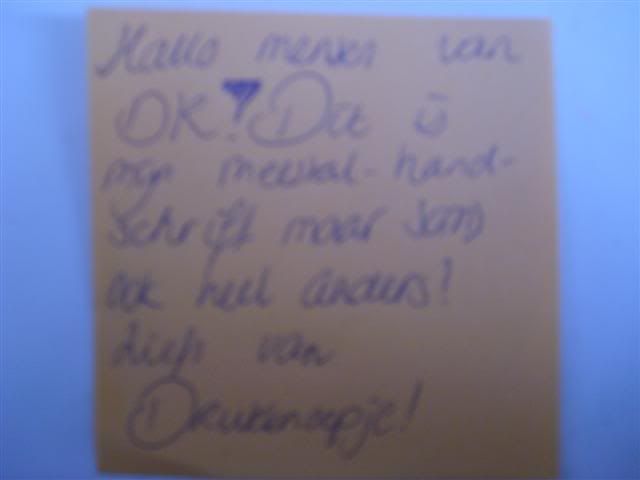 Hallo mensen van
OK! Dit is
mijn meestal-hand-
schrift maar soms
ook heel anders!
Liefs van
Drukknoopje!